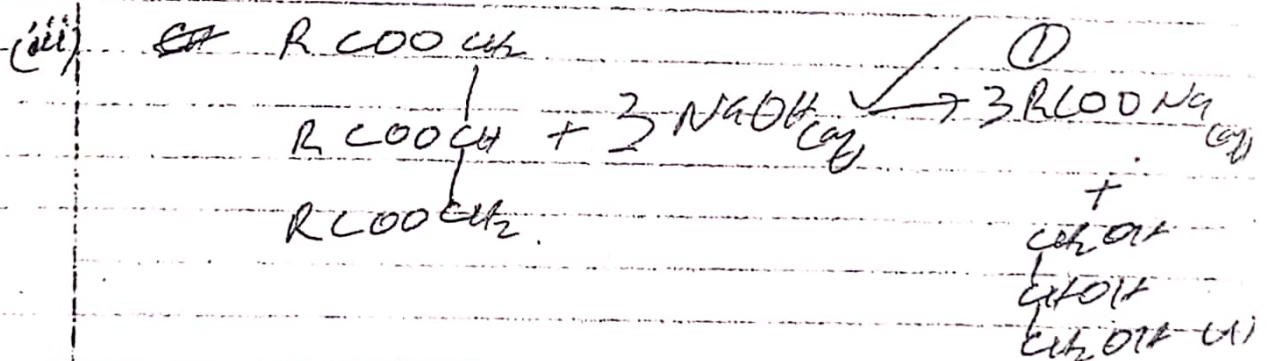 (iii) RCOOCH2 ①
RCOOCH + 3 NaOH(aq) → 3RCOONa(aq)
+
RCOOCH2.
CH2OH
CHOH
CH2OH (l)